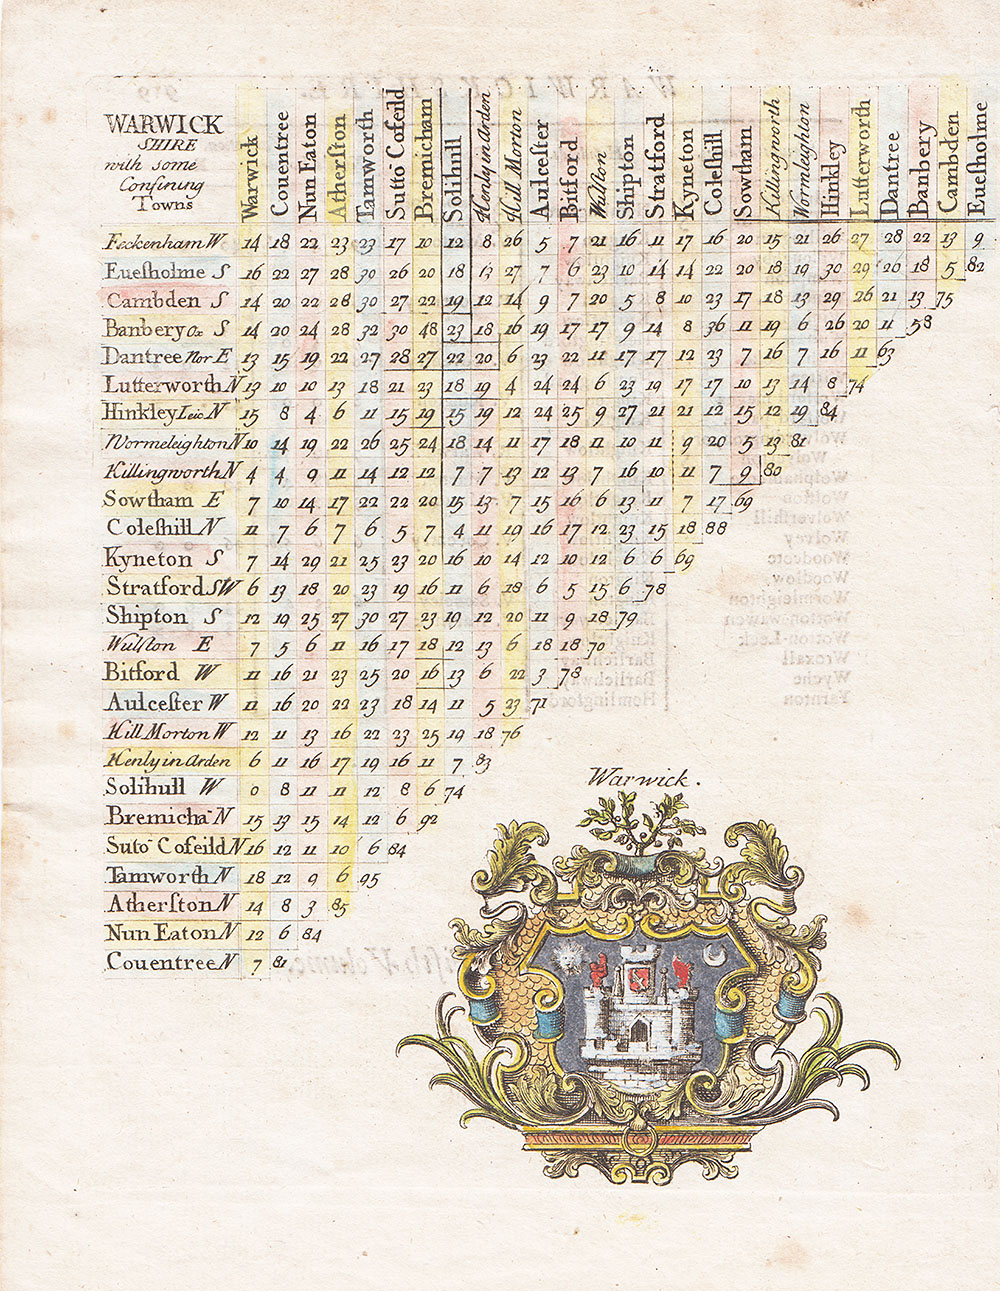 WARWICK
SHIRE
with some
Confining
Towns
Warwick Couentree Nun Eaton Atherſton Tamworth Sutto Cofeild Bremicham Solihull Henly in Arden Hill Morton Aulceſter Bitford Wulſton Shipton Stratford Kyneton Coleſhill Sowtham Killingworth Wormleighton Hinkley Lutterworth Dantree Banbery Cambden Eueſholme
Feckenham W 14 18 22 23 23 17 10 12 8 26 5 7 21 16 11 17 16 20 15 21 26 27 28 22 13 9
Eueſholme S 16 22 27 28 30 26 20 18 13 27 7 6 23 10 14 14 22 20 18 19 30 29 26 18 5 82
Cambden S 14 20 22 28 30 27 22 19 12 14 9 7 20 5 8 10 23 17 18 13 29 26 21 13 75
Banbery Ox S 14 20 24 28 32 30 48 23 18 16 19 17 17 9 14 8 36 11 19 6 26 20 11 58
Dantree Nor E 13 15 19 22 27 28 27 22 20 6 23 22 11 17 17 12 23 7 16 7 16 11 63
Lutterworth N 13 10 10 13 18 21 23 18 19 4 24 24 6 23 19 17 17 10 13 14 8 74
Hinkley Leic N 15 8 4 6 11 15 19 15 19 12 24 25 9 27 21 21 12 15 12 19 84
Wormeleighton N 10 14 19 22 26 25 24 18 14 11 17 18 11 10 11 9 20 5 13 81
Killingworth N 4 4 9 11 14 12 12 7 7 13 12 13 7 16 10 11 7 9 80
Sowtham E 7 10 14 17 22 22 20 15 13 7 15 16 6 13 11 7 17 69
Coleſhill N 11 7 6 7 6 5 7 4 11 19 16 17 12 23 15 18 88
Kyneton S 7 14 29 21 25 23 20 16 10 14 12 10 12 6 6 69
Stratford SW 6 13 18 20 23 19 16 11 6 18 6 5 15 6 78
Shipton S 12 19 25 27 30 27 23 19 12 20 11 9 18 79
Wulſton E 7 5 6 11 16 17 18 12 13 6 18 18 70
Bitford W 11 16 21 23 25 20 16 13 6 22 3 78
Aulceſter W 11 16 20 22 23 18 14 11 5 23 71
Hill Morton W 12 11 13 16 22 23 25 19 18 76
Henly in Arden 6 11 16 17 19 16 11 7 83
Solihull W 0 8 11 11 12 8 6 74
Bremicha N 15 13 15 14 12 6 92
Suto Cofeild N 16 12 11 10 6 84
Tamworth N 18 12 9 6 95
Atherſton N 14 8 3 85
Nun Eaton N 12 6 84
Couentree N 7 81
Warwick.